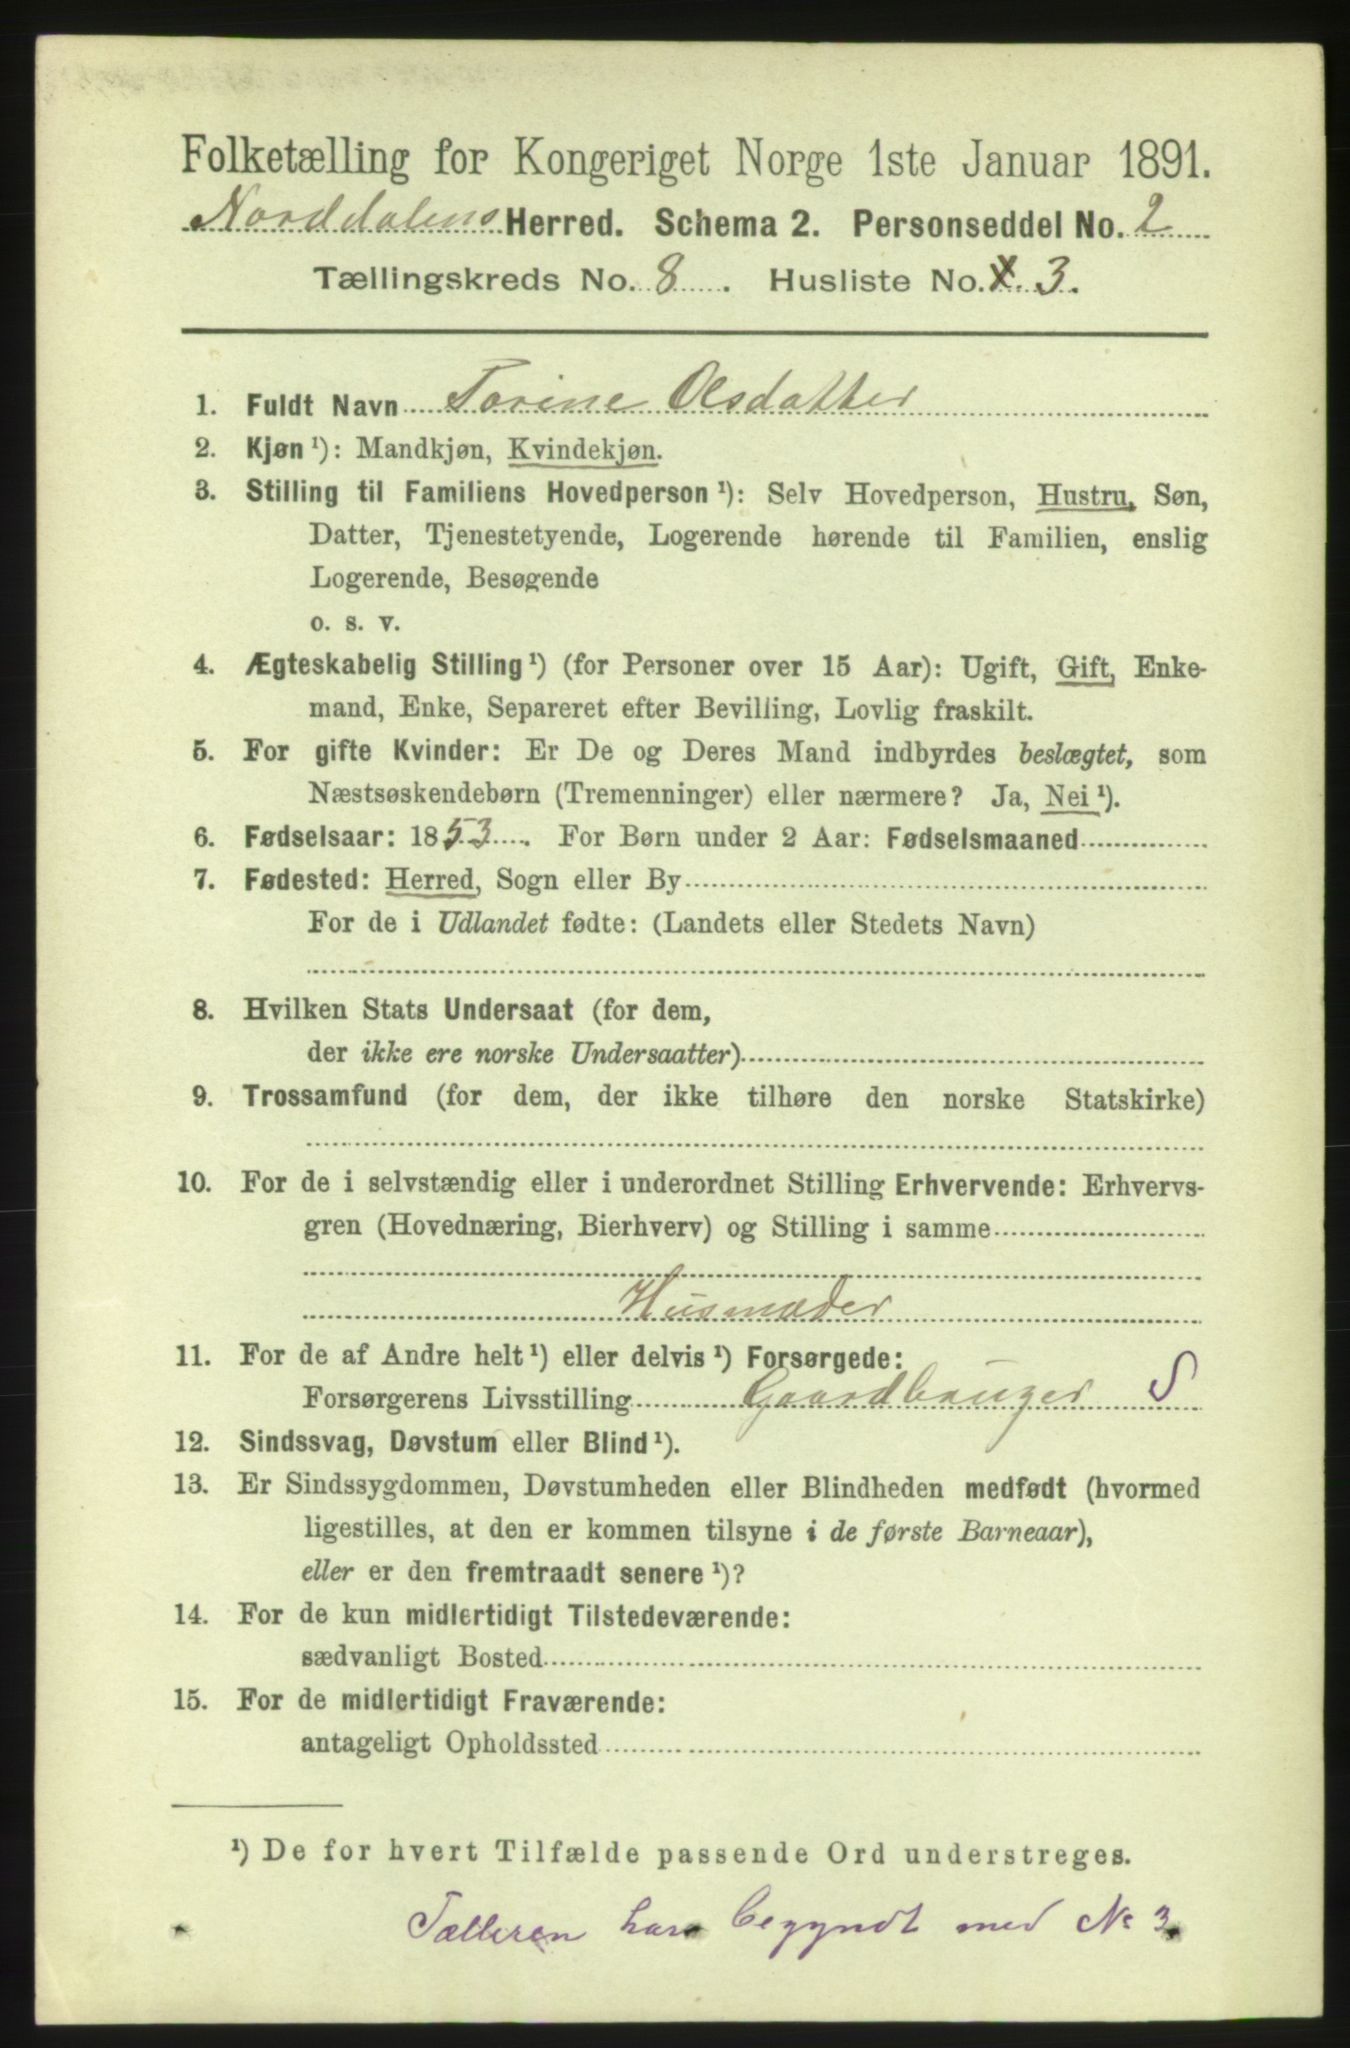 Folketælling for Kongeriget Norge 1ste Januar 1891.
Norddalens Herred. Schema 2. Personseddel No. 2
Tællingskreds No. 8. Husliste No. 3.
1. Fuldt Navn Torine Olsdatter
2. Kjøn ¹): Mandkjøn, Kvindekjøn.
3. Stilling til Familiens Hovedperson ¹): Selv Hovedperson, Hustru, Søn,
Datter, Tjenestetyende, Logerende hørende til Familien, enslig
Logerende, Besøgende
o. s. v.
4. Ægteskabelig Stilling ¹) (for Personer over 15 Aar): Ugift, Gift, Enke-
mand, Enke, Separeret efter Bevilling, Lovlig fraskilt.
5. For gifte Kvinder: Er De og Deres Mand indbyrdes beslægtet, som
Næstsøskendebørn (Tremenninger) eller nærmere? Ja, Nei ¹).
6. Fødselsaar: 1853. For Børn under 2 Aar: Fødselsmaaned
7. Fødested: Herred, Sogn eller By
For de i Udlandet fødte: (Landets eller Stedets Navn)
8. Hvilken Stats Undersaat (for dem,
der ikke ere norske Undersaatter)
9. Trossamfund (for dem, der ikke tilhøre den norske Statskirke)
10. For de i selvstændig eller i underordnet Stilling Erhvervende: Erhvervs-
gren (Hovednæring, Bierhverv) og Stilling i samme
Husmoder
11. For de af Andre helt ¹) eller delvis ¹) Forsørgede:
Forsørgerens Livsstilling Gaardbruger S
12. Sindssvag, Døvstum eller Blind ¹).
13. Er Sindssygdommen, Døvstumheden eller Blindheden medfødt (hvormed
ligestilles, at den er kommen tilsyne i de første Barneaar),
eller er den fremtraadt senere ¹)?
14. For de kun midlertidigt Tilstedeværende:
sædvanligt Bosted
15. For de midlertidigt Fraværende:
antageligt Opholdssted
¹) De for hvert Tilfælde passende Ord understreges.
Tælleren har begyndt med No 3